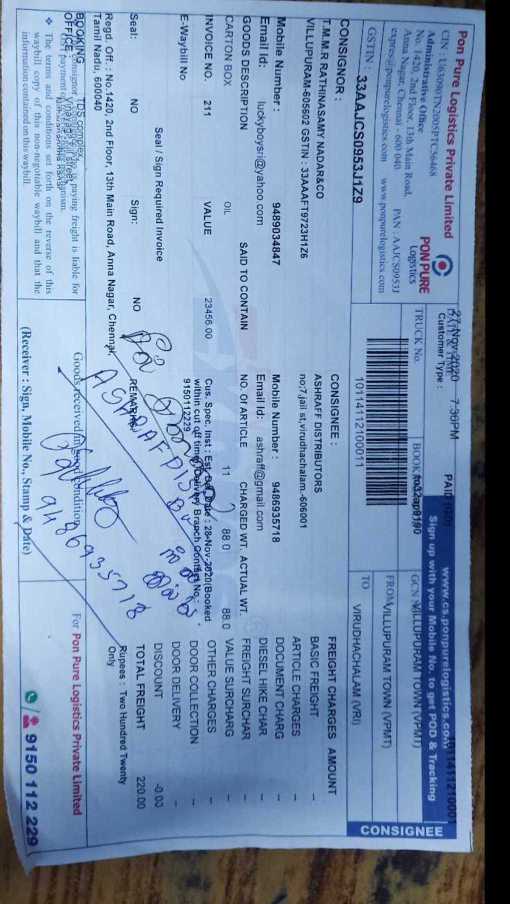 Pon Pure Logistics Private Limited
CIN : U63090TN2005PTC56468
Administrative Office
No. 1420, 2nd Floor, 13th Main Road,
Anna Nagar, Chennai - 600 040
PAN : AAJCS0953J
www.ponpurelogistics.com
GSTIN : 33AAJCS0953J1Z9
PON PURE
Logistics
27-Nov-2020 7:36PM
Customer Type : PAID
TRUCK No.
10114112100011
www.cs.ponpurelogistics.com
Sign up with your Mobile No. to get POD & Tracking
FROM VILLUPURAM TOWN (VPMT)
TO VIRUDHACHALAM (VRI)
CONSIGNEE
CONSIGNOR :
T.M.M.R RATHINASAMY NADAR&CO
VILLUPURAM-605602 GSTIN : 33AAAFT9723H1Z6
Mobile Number : 9489034847
Email Id: luckyboysri@yahoo.com
CONSIGNEE :
ASHRAFF DISTRIBUTORS
no7,jail st,virudhachalam.-606001
Mobile Number : 9486935718
Email Id: ashraff@gmail.com
GOODS DESCRIPTION SAID TO CONTAIN NO. Of ARTICLE CHARGED WT. ACTUAL WT.
CARTON BOX OIL 11 88.0 88.0
INVOICE NO. 211 VALUE 23456.00
Cus. Spec. Inst : Est. Del. Date : 28-Nov-2020(Booked
within cut off time) Delivery Branch Contact No.:
9150112229
E-Waybill No
Seal / Sign Required Invoice
Seal: NO Sign: NO REMARKS
FREIGHT CHARGES AMOUNT
BASIC FREIGHT
ARTICLE CHARGES
DOCUMENT CHARG
DIESEL HIKE CHAR
FREIGHT SURCHAR
VALUE SURCHARG
OTHER CHARGES
DOOR COLLECTION
DOOR DELIVERY
DISCOUNT -0.00
TOTAL FREIGHT 220.00
Rupees : Two Hundred Twenty
Only
Regd. Off. : No.1420, 2nd Floor, 13th Main Road, Anna Nagar, Chennai,
Tamil Nadu, 600040
BOOKING
OFFICE
TDS complex,
paying freight is liable for
The terms and conditions set forth on the reverse of this
waybill copy of this non-negotiable waybill and that the
information contained on this waybill.
Goods received in good condition
ASHRAFF
9486935718
(Receiver : Sign, Mobile No., Stamp & Date)
For Pon Pure Logistics Private Limited
9150 112 229